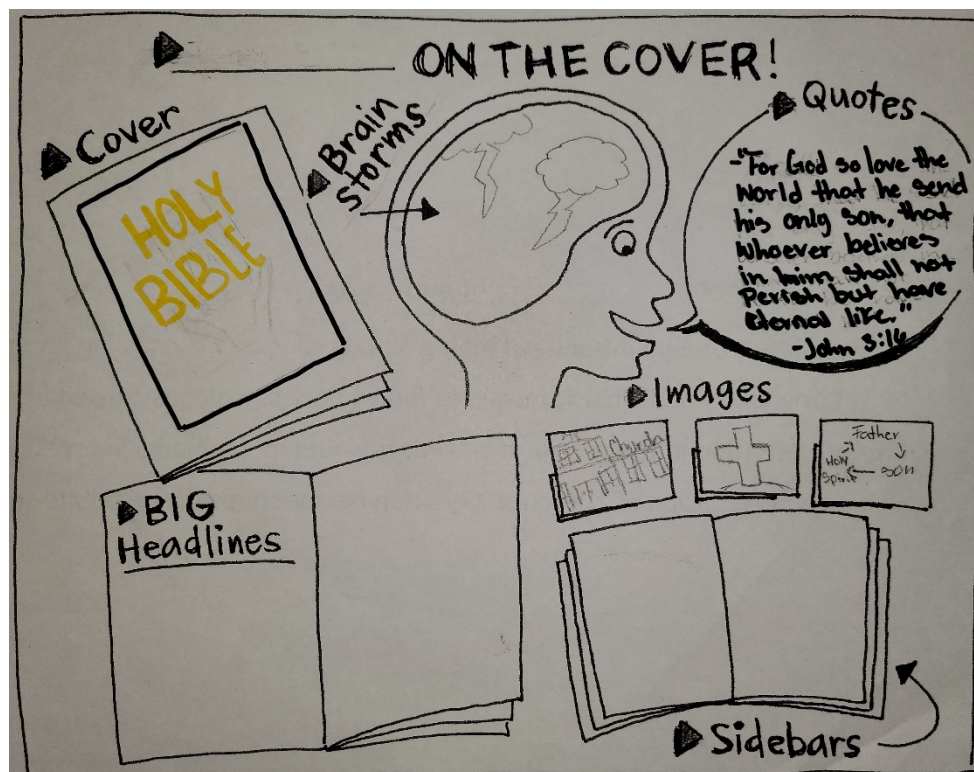 ON THE COVER!
Cover
HOLY
BIBLE
Brain
storms
Quotes
-"For God so love the
World that he send
his only son, that
Whoever believes
in him shall not
Perish but have
Eternal like."
-John 3:16
Images
Church
Father
Holy
Spirit
son
BIG
Headlines
Sidebars